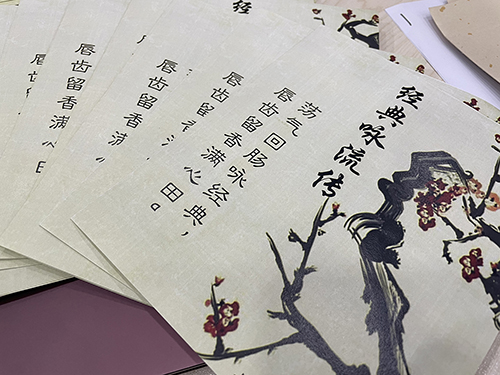 经典咏流传
荡气回肠咏经典，
唇齿留香满心田。
经
唇齿留
唇齿留香
唇齿留香满
唇齿留香满
田